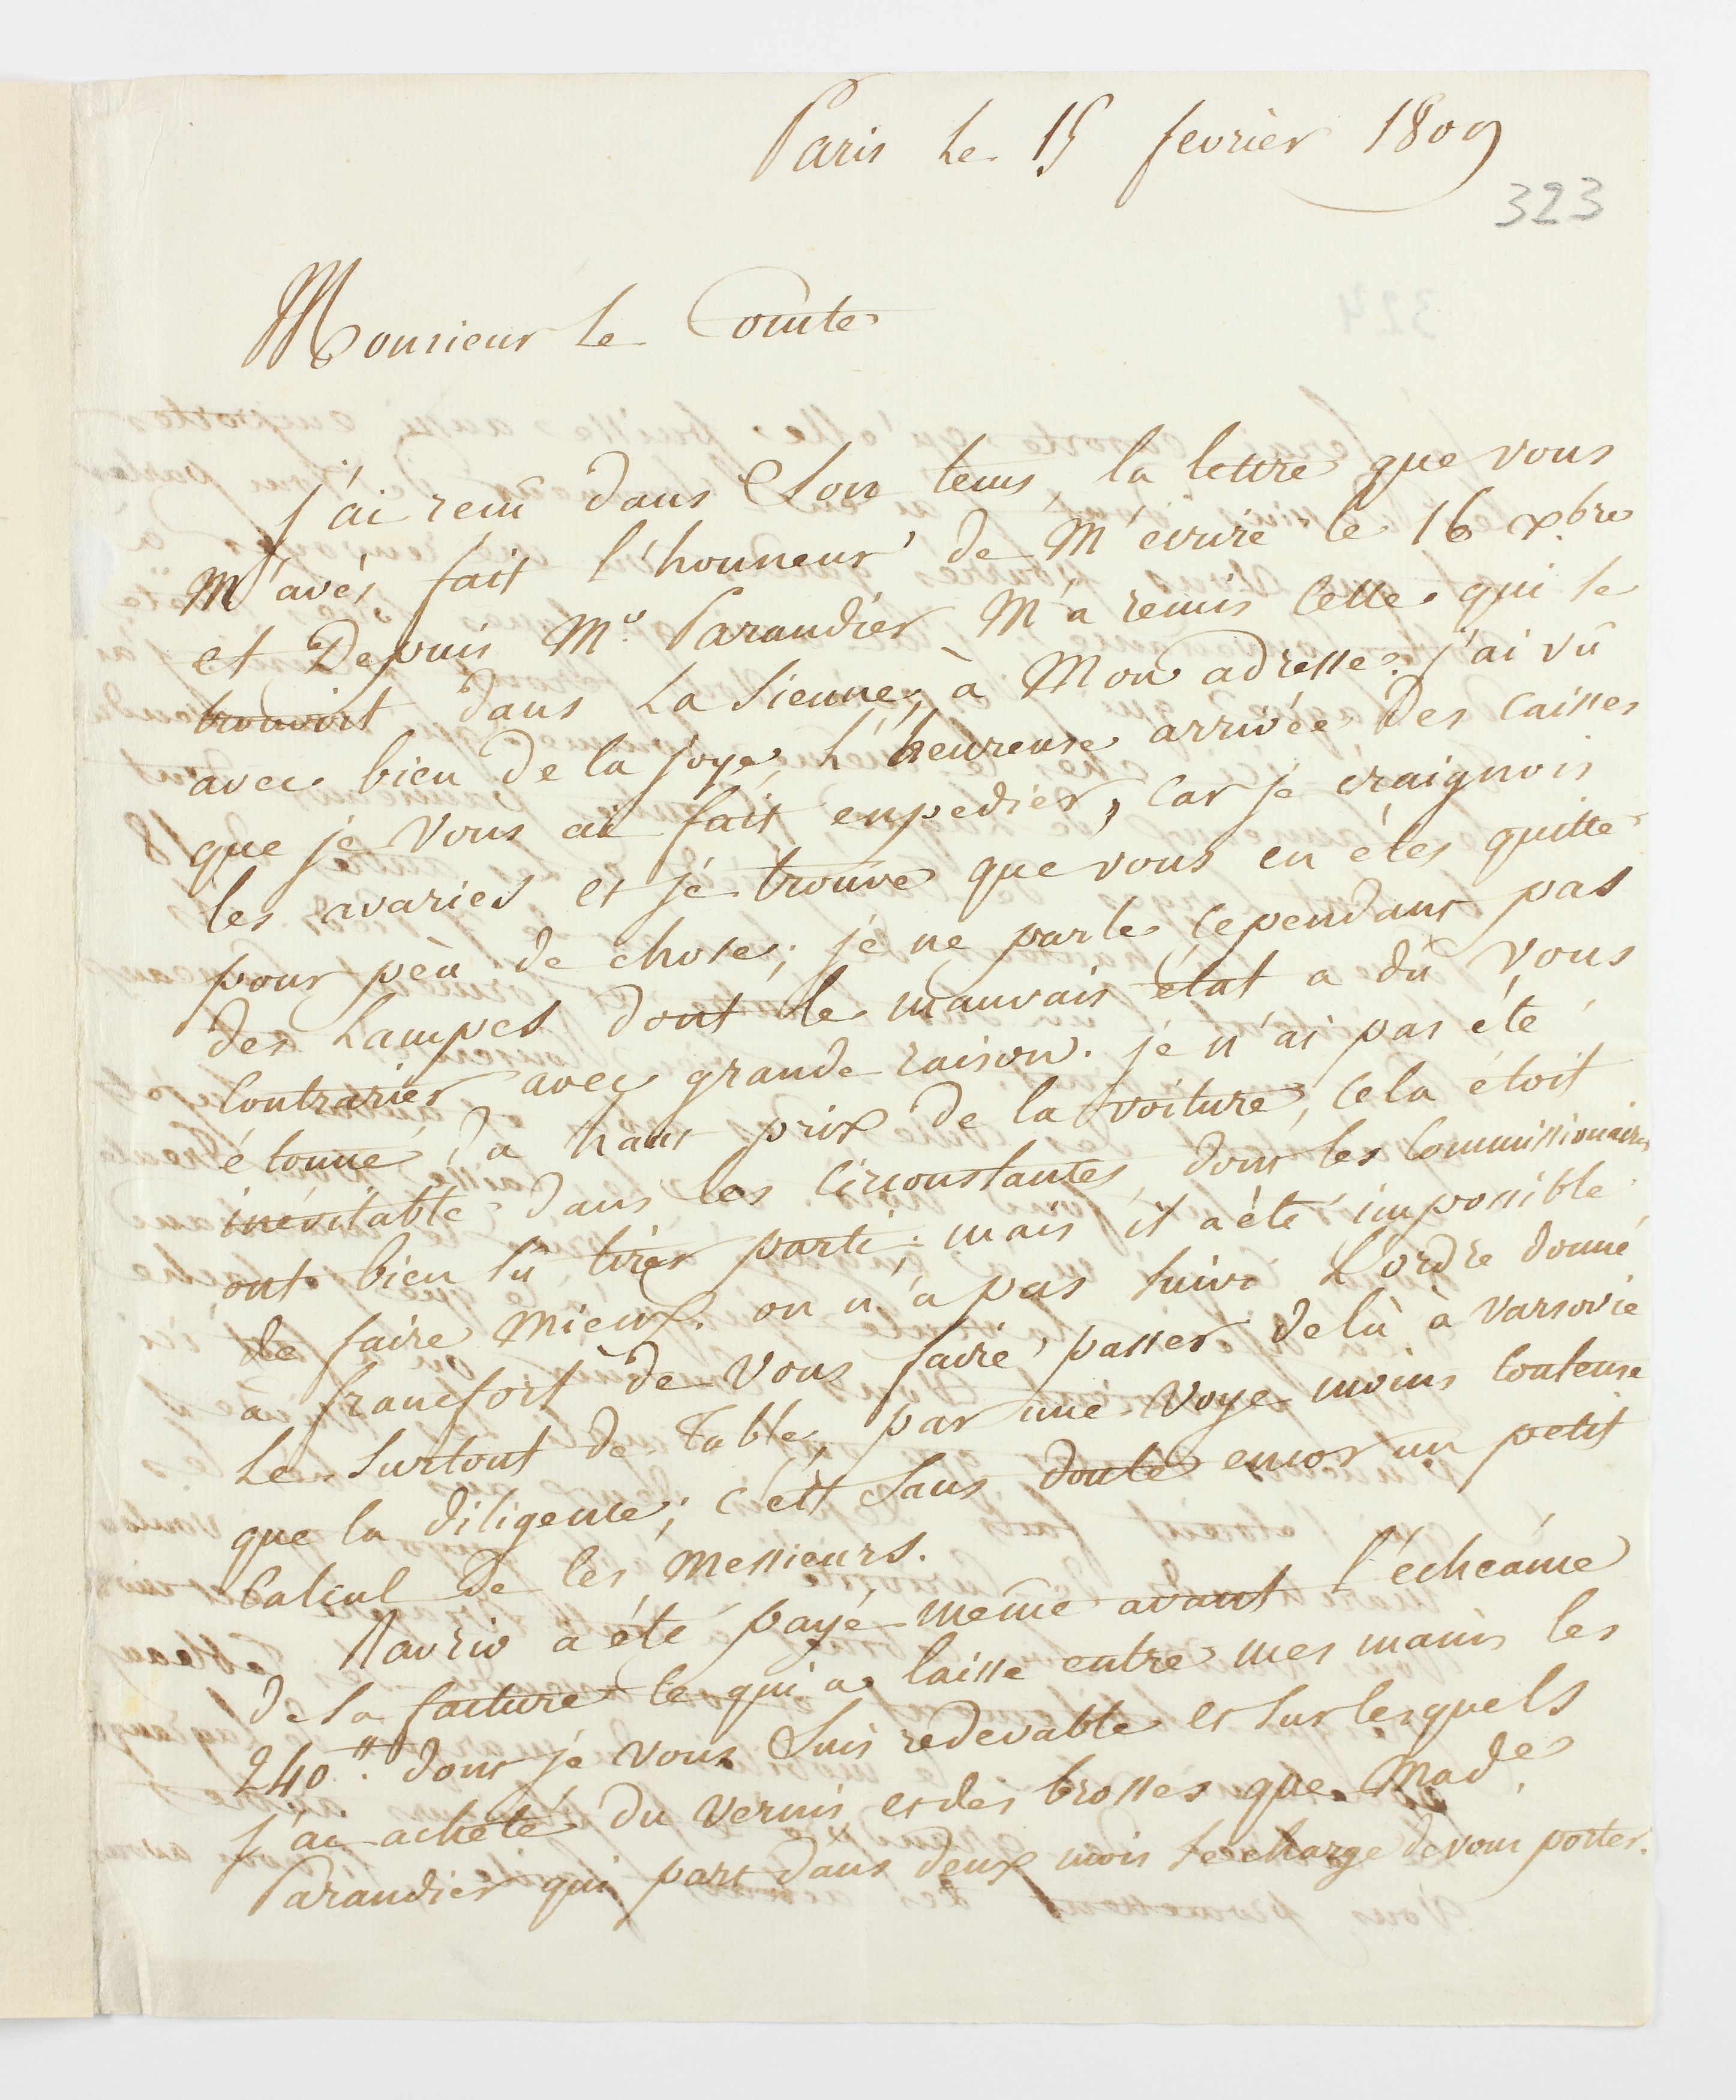 Paris le 15 fevrièr 1809
323
Monsieur le Comte
j'ai recu dans Son tems, la lettre que vous
M'avés fait l'honneur de M'écrire le 16 xbre
et Depuis Mr. Parandier M'a remis Celle qui se
trouvoit dans La Sienne, à Mon adresse. j'ai vû
avec bien de la joye, L'heureuse arrivée des caisses
que je vous ai fait expedier, Car je craignois
les avaries et je trouve que vous en étes quitte
pour peu de chose; je ne parle cependant pas
des Lampes dont le mauvais état a dû vous
Contrarier avec grande raison. je n'ai pas été
étonné du haut prix de la voiture, cela étoit
inévitable dans les Circonstances, dont les Commissionaires
ont bien sû tirer parti, mais il a été impossible
de faire Mieux. on n'a pas Suivi L'ordre donné
à francfort de vous faire passer delà à varsovie
Le Surtout de Table, par une voye moins couteuse
que la diligence; c'est Sans doute encor un petit
Calcul de ces Messieurs.
Ravrio a été payé même avant l'échéance
de sa facture ce qui a laissé entre mes mains les
240 ₶. dont je vous Suis redevable et sur lesquels
j'ai acheté du vernis et des brosses que Made.
Parandier qui part dans deux mois se charge de vous porter.